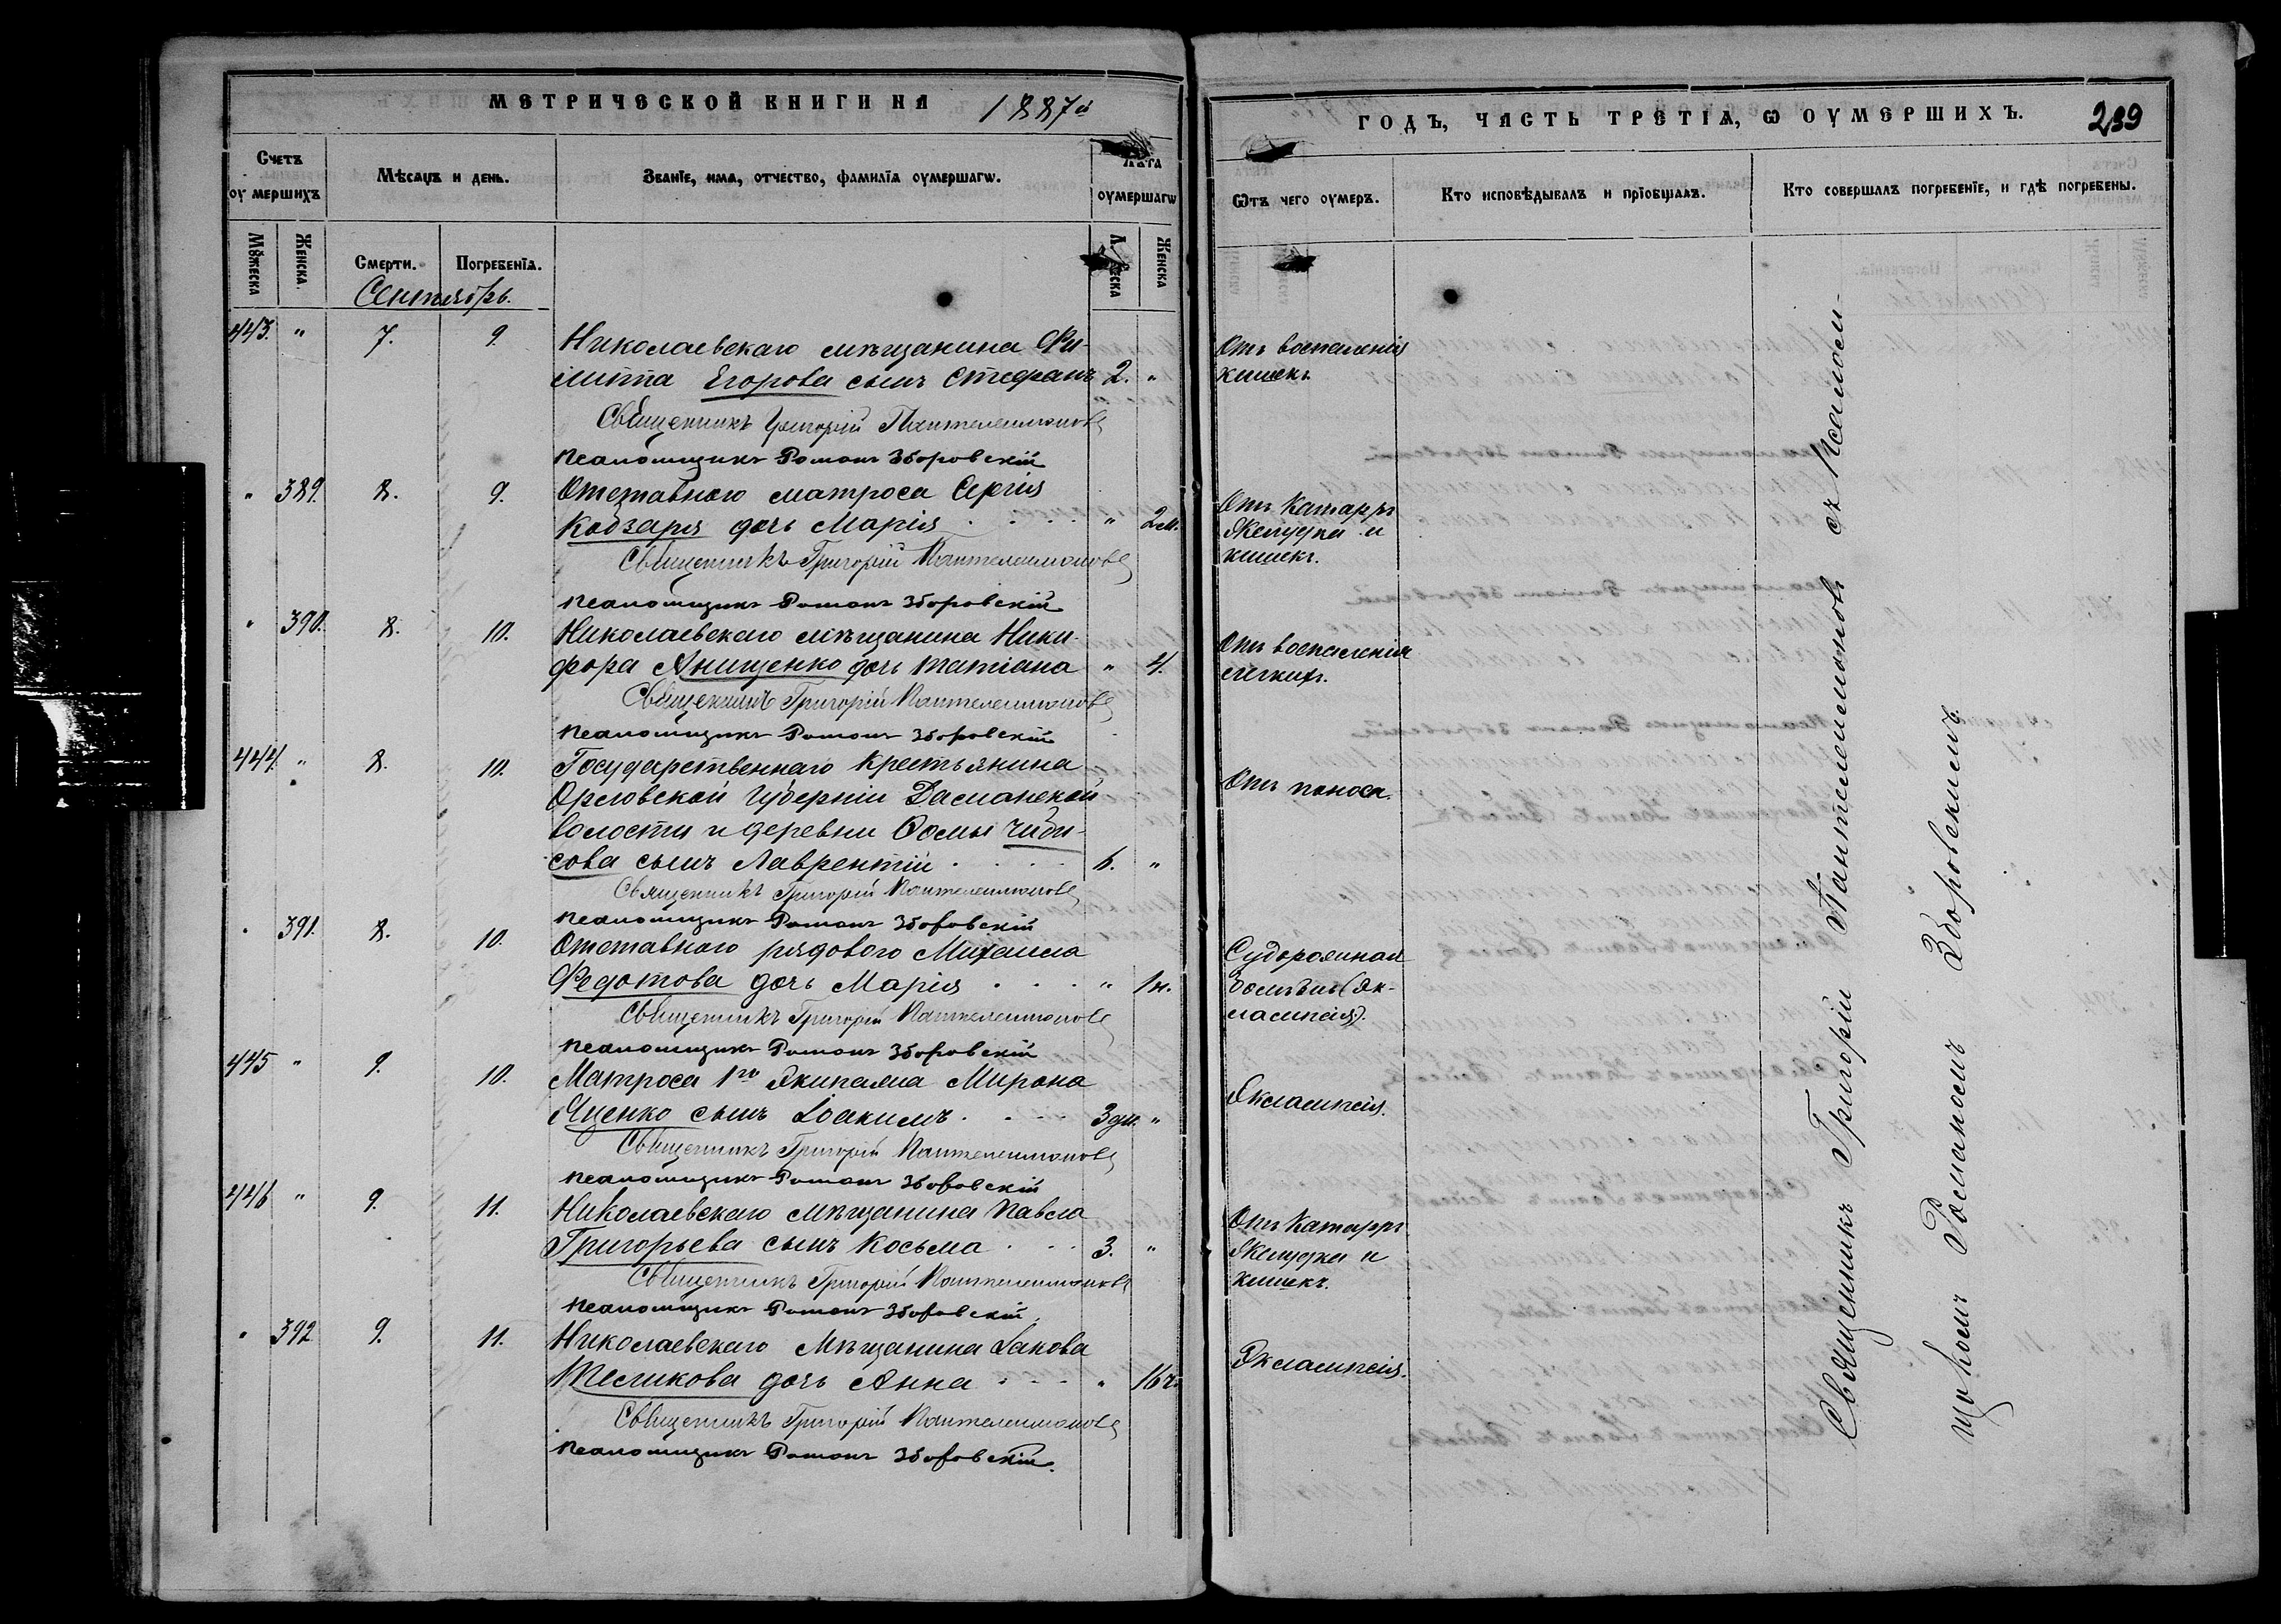 МЕТРИЧЕСКОЙ КНИГИ НА 1887й
ГОДЪ, ЧАСТЬ ТРЕТІѦ, Ѡ ОУМЕРШИХЪ. 239
Счетъ оумершихъ
Мѣсяцъ и день.
Званіе, имя, отчество, фамиліѧ оумершагѡ.
Лѣта оумершагѡ
Ѿтъ чего оумеръ.
Кто исповѣдывалъ и пріобщалъ.
Кто совершалъ погребеніе, и гдѣ погребены.
Мꙋжеска
Женска.
Смерти.
Погребеніѧ.
Женска
Сентябрь.
443. " 7. 9. Николаевскаго мѣщанина Фи-
липпа Егорова сынъ Стефанъ 2. "
Отъ воспаленія
кишекъ.
Священникъ Григорій Пантелеимоновъ
Псаломщикъ Романъ Зборовскій
" 389. 8. 9. Отставного матроса Сергія
Кобзаря дочь Марія " 2 м.
Отъ катарръ
желудка и
кишекъ.
Священникъ Григорій Пантелеимоновъ
Псаломщикъ Романъ Зборовскій
" 390. 8. 10. Николаевскаго мѣщанина Ники-
фора Анищенко дочь Татіана " 4.
Отъ воспаленія
легкихъ.
Священникъ Григорій Пантелеимоновъ
Псаломщикъ Романъ Зборовскій
444. " 8. 10. Государственнаго крестьянина
Орловской губерніи
волости и деревни Фомы Чиби-
сова сынъ Лаврентій 6. "
Отъ поноса.
Священникъ Григорій Пантелеимоновъ
Псаломщикъ Романъ Зборовскій
" 391. 8. 10. Отставного рядового Михаила
Федотова дочь Марія " 1 н.
Судорожная
болѣзнь (Эк-
лампсія).
Священникъ Григорій Пантелеимоновъ
Псаломщикъ Романъ Зборовскій
445 " 9. 10. Матроса 1го Экипажа Мирона
Яценко сынъ Іоакимъ 3 дн. "
Эклампсія.
Священникъ Григорій Пантелеимоновъ
Псаломщикъ Романъ Зборовскій
446 " 9. 11. Николаевскаго мѣщанина Павла
Григорьева сынъ Косьма 3. "
Отъ катарръ
желудка и
кишекъ.
Священникъ Григорій Пантелеимоновъ
Псаломщикъ Романъ Зборовскій
" 392 9. 11. Николаевскаго мѣщанина Іакова
Тесликова дочь Анна "
Эклампсія.
Священникъ Григорій Пантелеимоновъ
Псаломщикъ Романъ Зборовскій.
Священникъ Григорій Пантелеимоновъ съ Псалом-
щикомъ Романомъ Зборовскимъ.